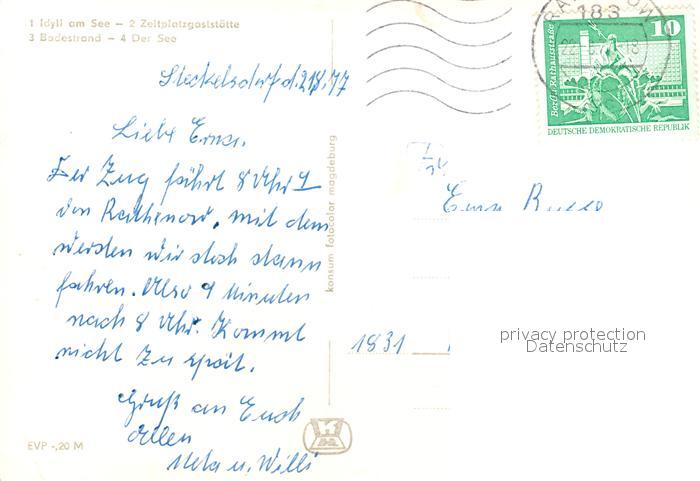 1 Idyll am See – 2 Zeltplatzgaststätte
3 Badestrand – 4 Der See
Steckelsdorf d. 21.8.77
Liebe Erna.
Der Zug fährt 8 Uhr 9
von Rathenow, mit dem
werden wir doch dann
fahren. Also 9 Minuten
nach 8 Uhr. Kommt
nicht zu spät.
Gruß an Euch
Allen
Meta u. Willi
EVP -,20 M
konsum fotocolor magdeburg
183
Berlin, Rathausstraße
10
DEUTSCHE DEMOKRATISCHE REPUBLIK
Erna
1831
privacy protection
Datenschutz